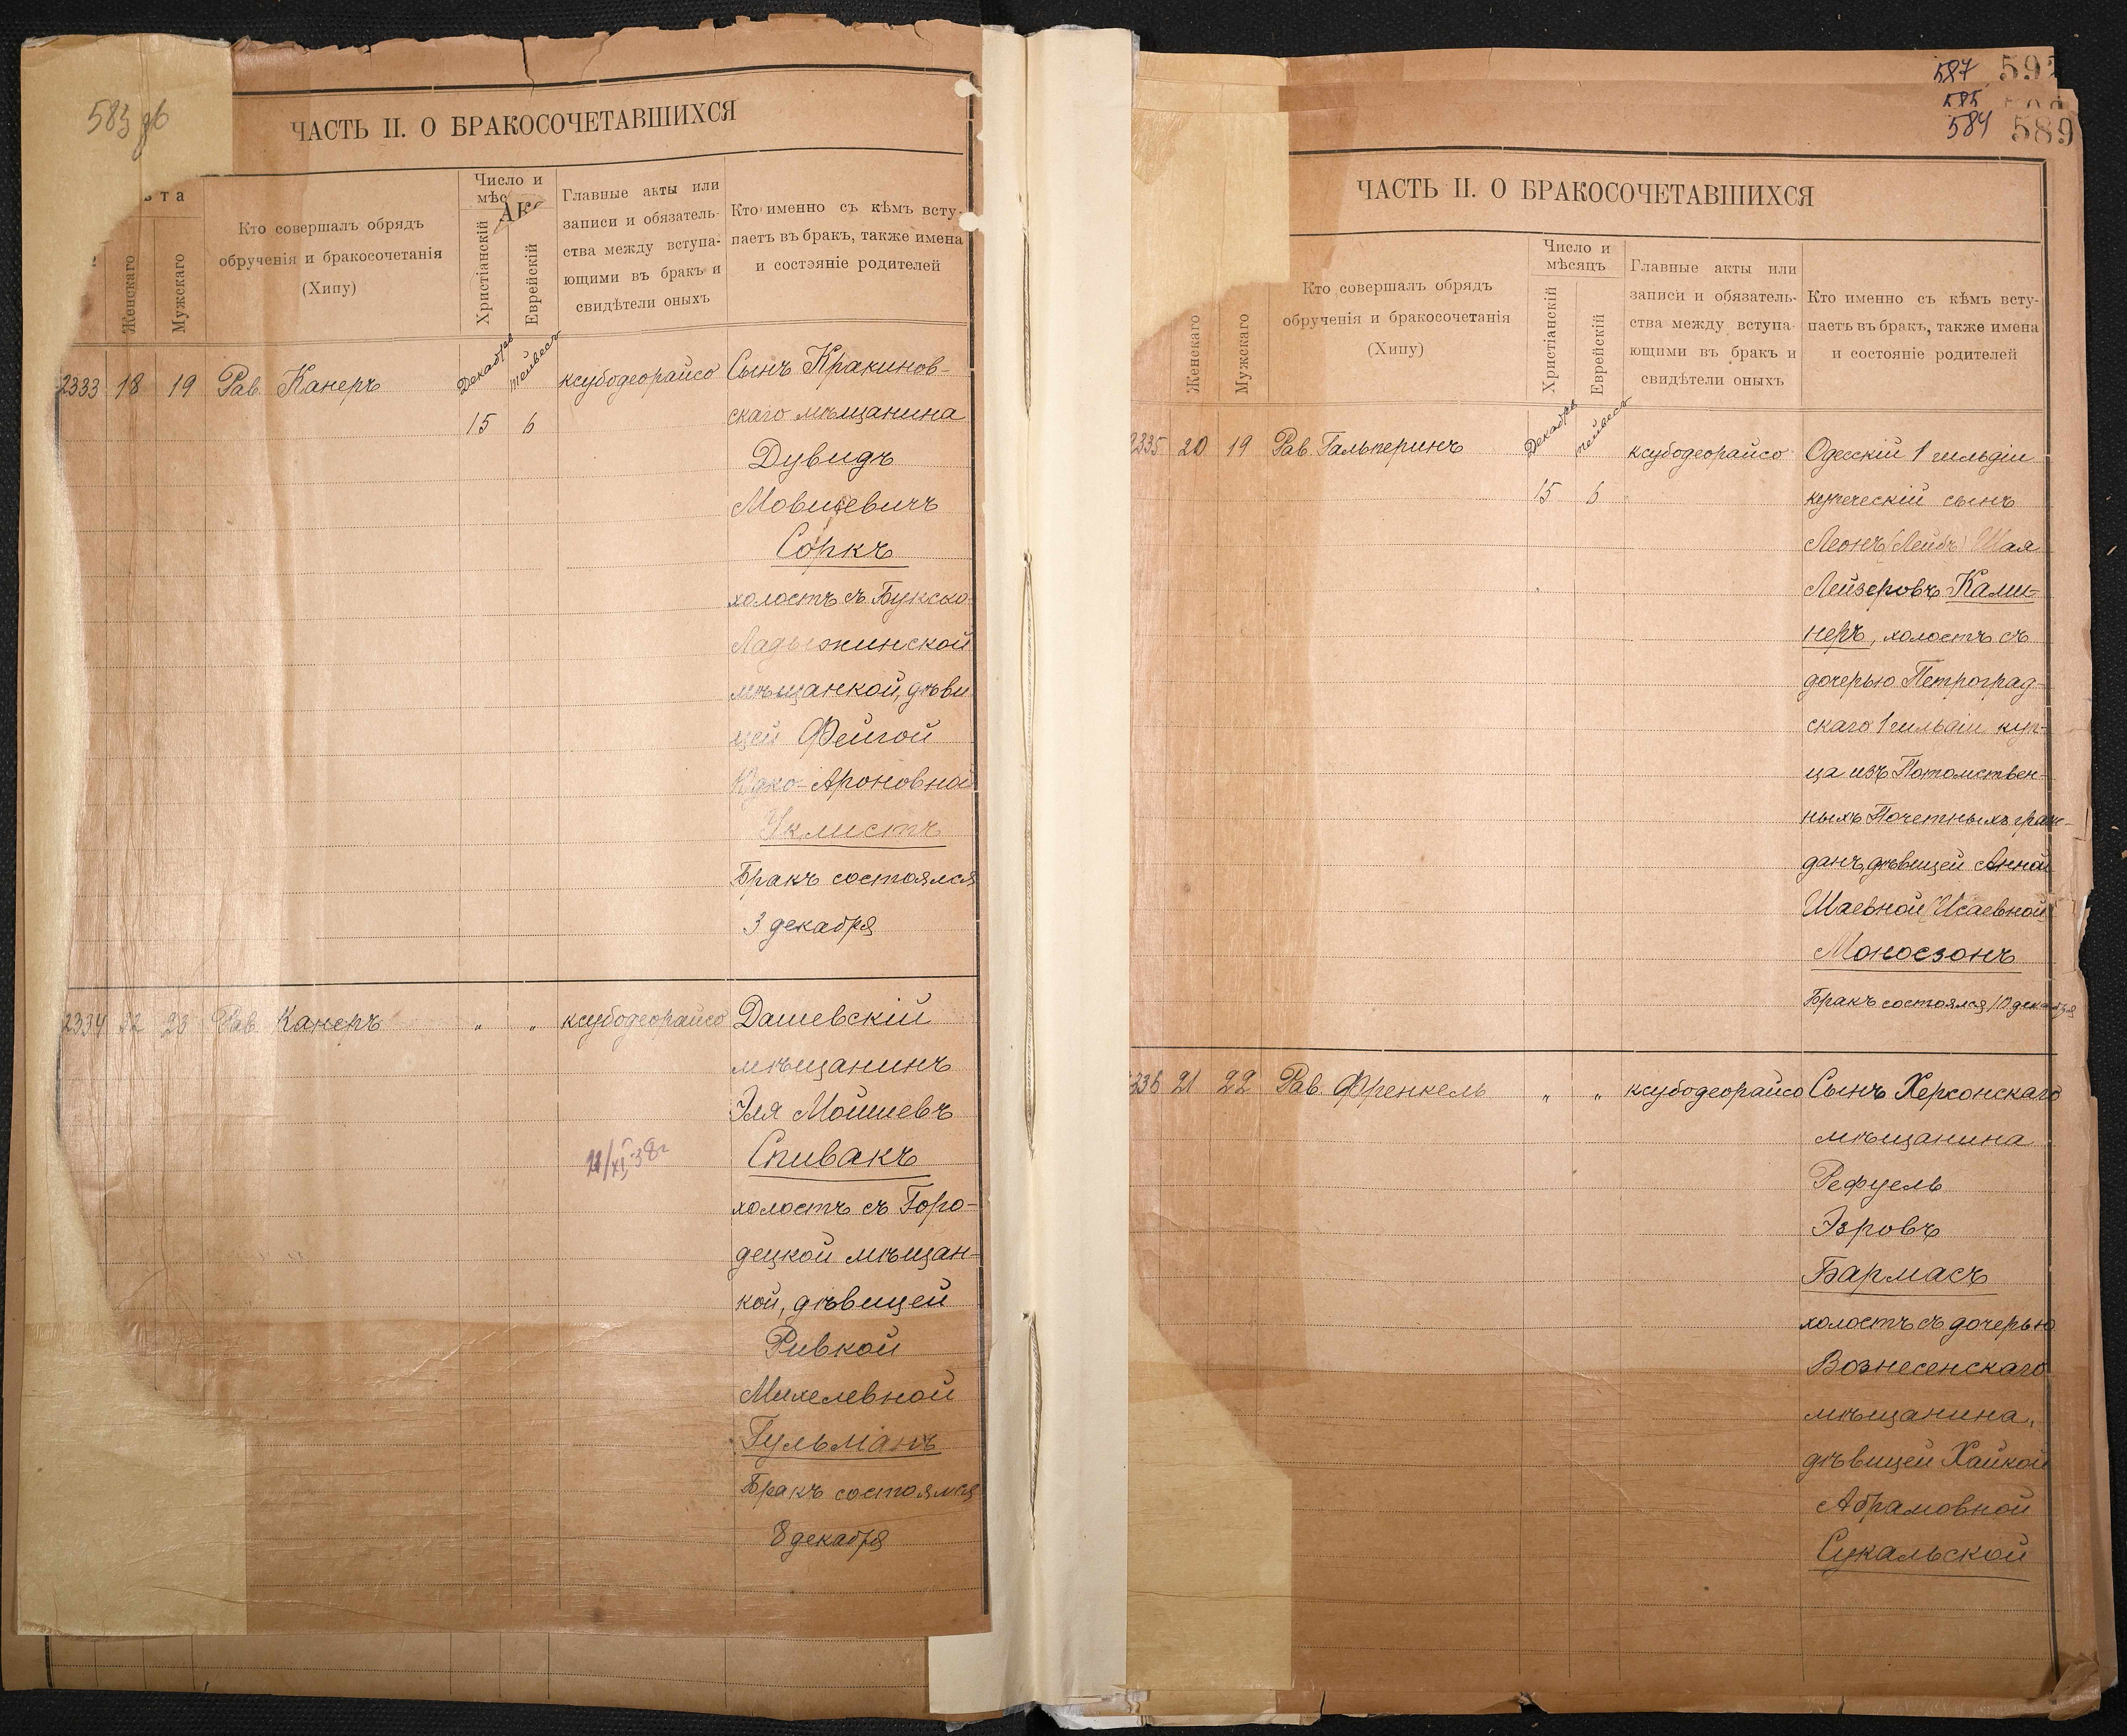 583 об
ЧАСТЬ II. О БРАКОСОЧЕТАВШИХСЯ
ѣта
Женскаго
Мужскаго
Кто совершалъ обрядъ
обрученія и бракосочетанія
(Хипу)
Число и
мѣс
Христіанскій
Еврейскій
Главные акты или
записи и обязатель-
ства между вступа-
ющими въ бракъ и
свидѣтели оныхъ
Кто именно съ кѣмъ всту-
паетъ въ бракъ, также имена
и состояніе родителей
2333 18 19 Рав. Канеръ
Декабрь
тейвесъ
15 6
ксубодеорайсо
Сынъ Кракинов-
скаго мѣщанина
Дувидъ
Мовшевичъ
Соркъ
холостъ съ Букско-
Ладыжинской
мѣщанкой, дѣви
цей Фейгой
Юдко-Ароновной
Чклистъ
Бракъ состоялся
3 декабря
2334 22 23 Рав. Канеръ
" "
ксубодеорайсо
11/XI, 38 г
Дашевскій
мѣщанинъ
Эля Мошшевъ
Спивакъ
холостъ съ Горо-
децкой мѣщан-
кой, дѣвицей
Ривкой
Михелевной
Гульманъ
Бракъ состоялся
8 декабря
587
585
584
589
ЧАСТЬ II. О БРАКОСОЧЕТАВШИХСЯ
Женскаго
Мужскаго
Кто совершалъ обрядъ
обрученія и бракосочетанія
(Хипу)
Число и
мѣсяцъ
Христіанскій
Еврейскій
Главные акты или
записи и обязатель-
ства между вступа-
ющими въ бракъ и
свидѣтели оныхъ
Кто именно съ кѣмъ всту-
паетъ въ бракъ, также имена
и состояніе родителей
2335 20 19 Рав. Гальперинъ
Декабрь
тейвесъ
15 6
ксубодеорайсо
Одесскій 1 гильдіи
купеческій сынъ
Леонъ (Лейбъ) Шая
Лейзеровъ Ками-
неръ, холостъ съ
дочерью Петроград-
скаго 1 гильдіи куп-
ца изъ Потомствен-
ныхъ Почетныхъ граж-
данъ, дѣвицей Анной
Шаевной (Исаевной)
Моносзонъ
Бракъ состоялся 10 декабря
336 21 22 Рав. Френкель
" "
ксубодеорайсо
Сынъ Херсонскаго
мѣщанина
Рефуель
Эзровъ
Бармасъ
холостъ съ дочерью
Вознесенскаго
мѣщанина,
дѣвицей Хайкой
Абрамовной
Сукальской